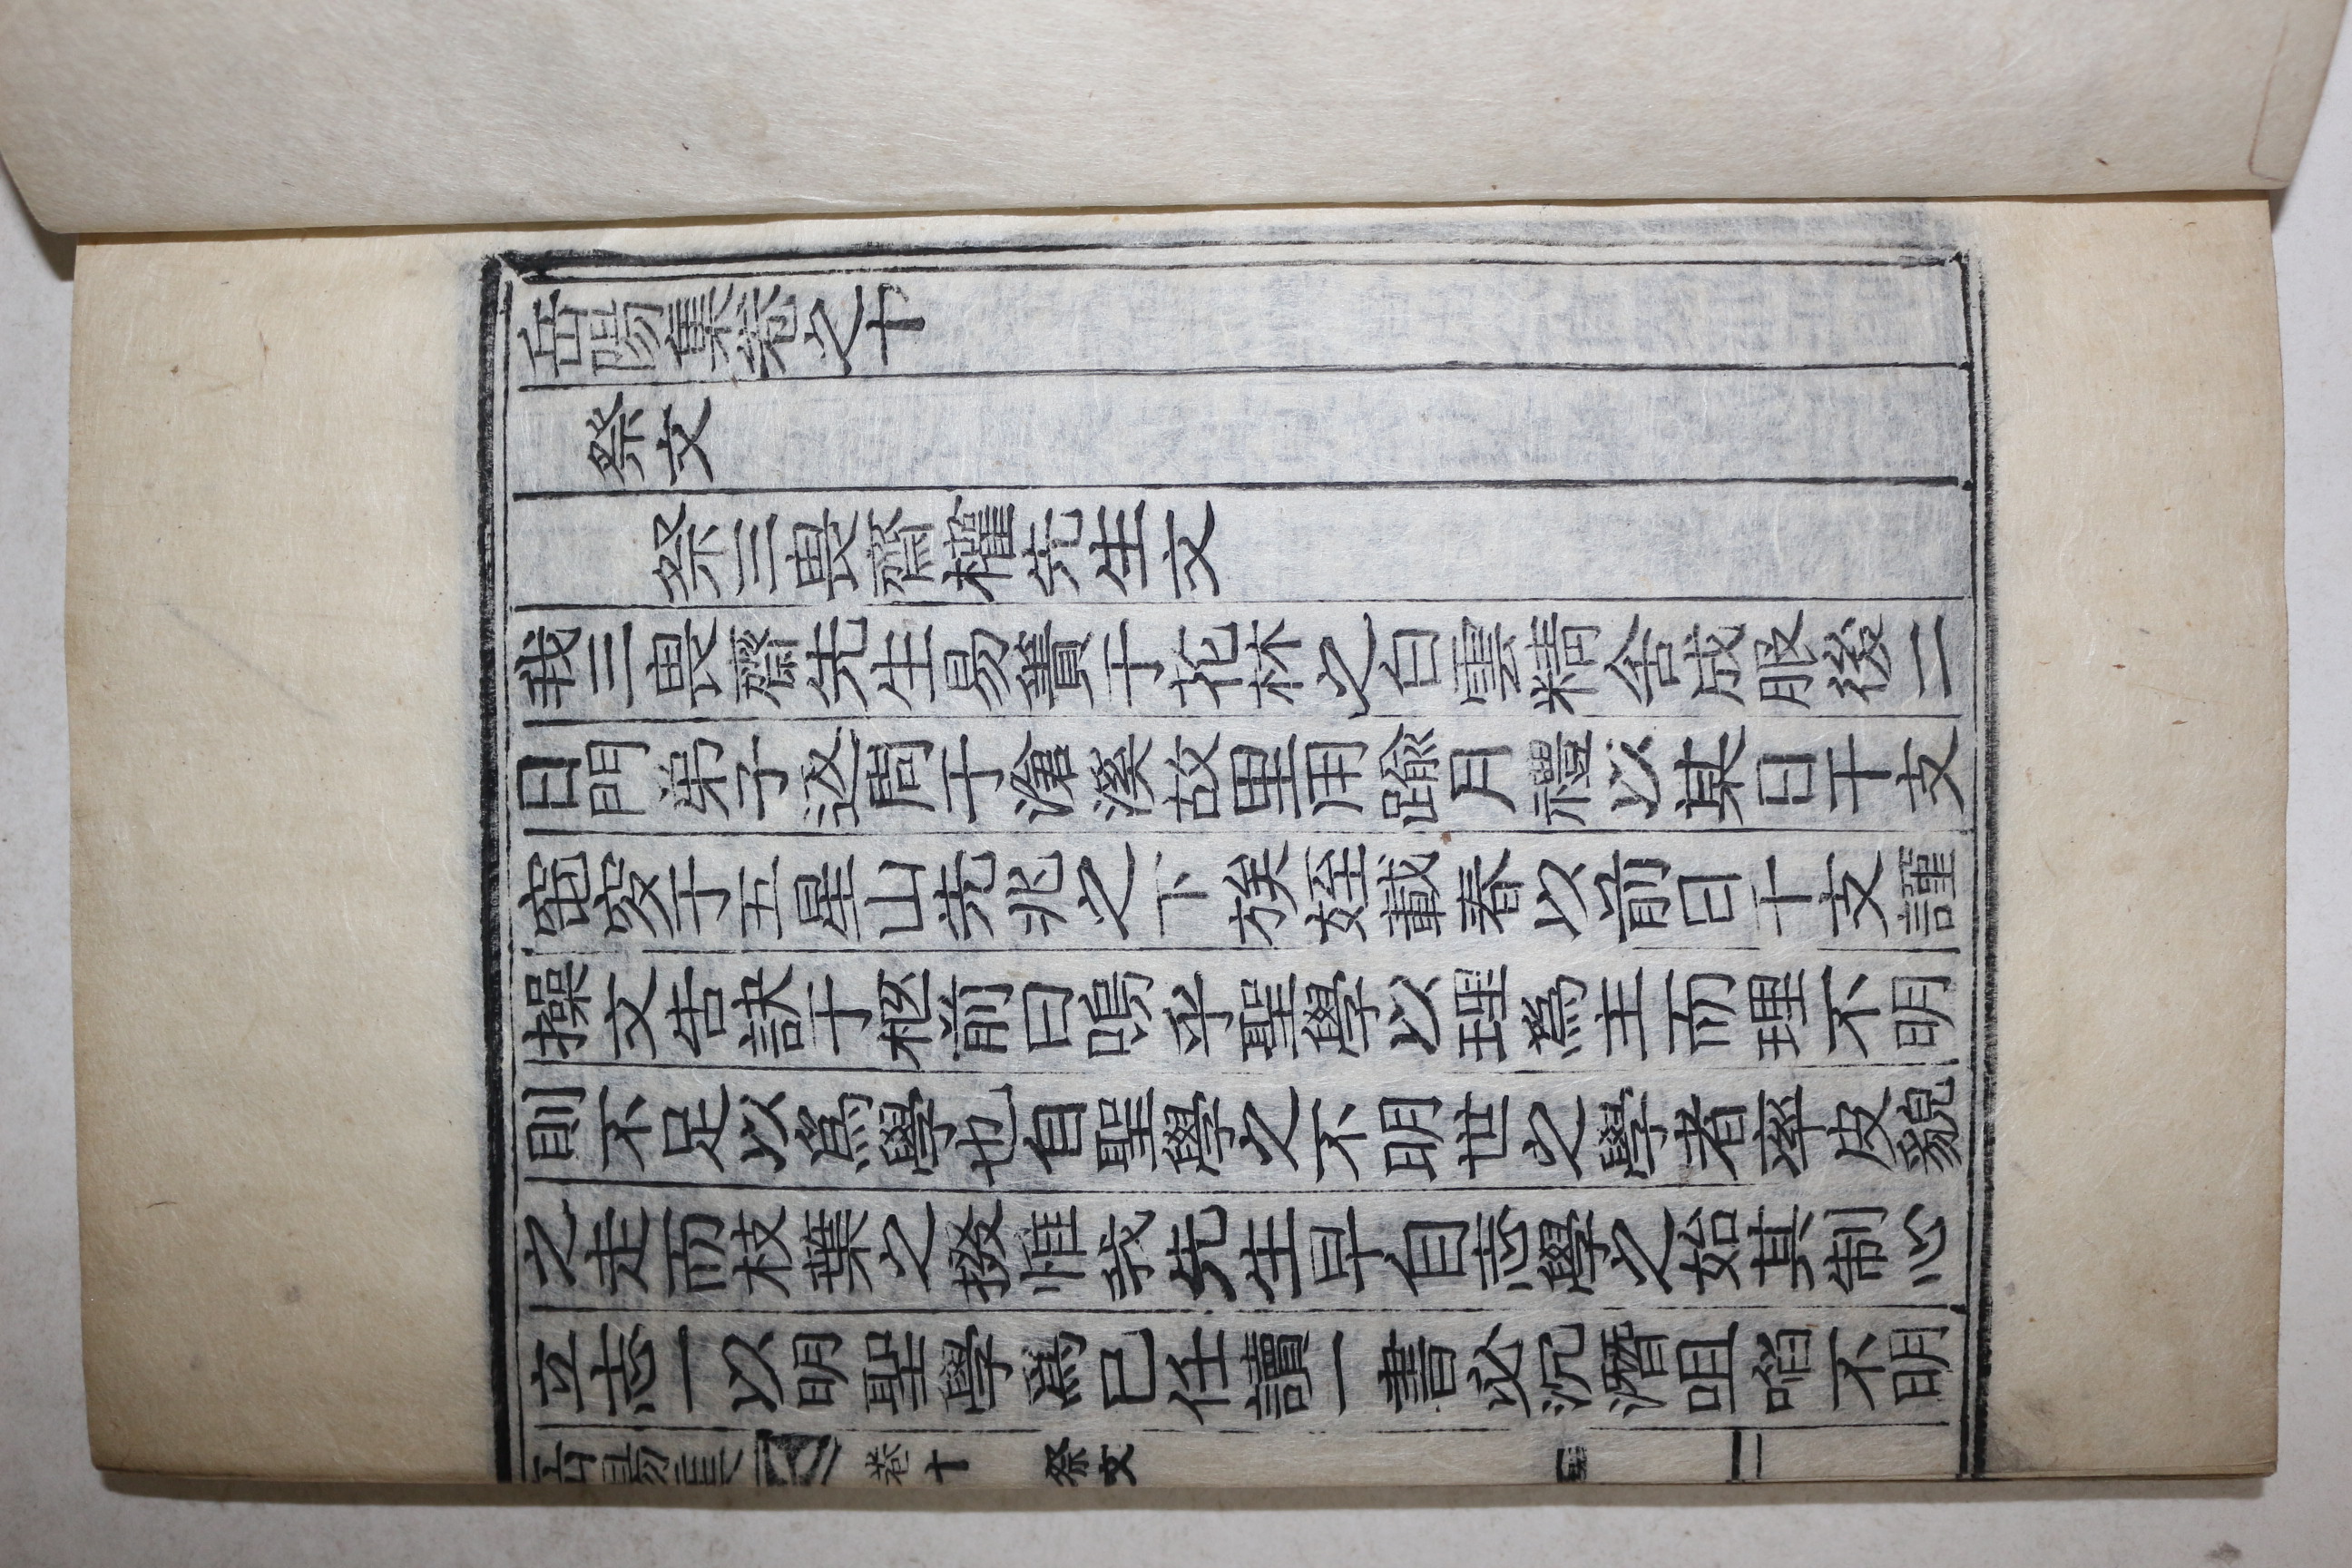 岳陽集卷之十
祭文
祭三畏齋權先生文
我三畏齋先生易簀于花林之白雲精舍成服後二
日門弟子返周于滄溪故里用踰月禮以某日干支
窀穸于五星山先兆之下族姪載春以前日干支謹
操文告訣于柩前曰嗚乎聖學以理爲主而理不明
則不足以爲學也自聖學之不明世之學者率皮貌
之走而枝葉之掇惟我先生早自志學之始其制心
立志一以明聖學爲己任讀一書必沉潛咀啗不明
岳陽集 卷十 祭文 一